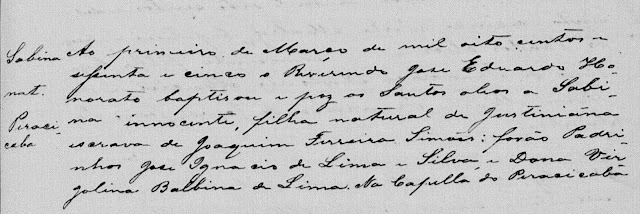 Sabina
nat.
Piraci-
caba
Ao primeiro de Março de mil oito centos e
sesenta e cinco o Reverendo Jose Eduardo Ho-
norato baptisou e poz os Santos oleos a Sabi-
na innocente, filha natural de Justiniana
escrava de Joaquim Ferreira Simões: forão Padri-
nhos Jose Ignacio de Lima e Silva e Dona Vir-
golina Balbina de Lima. Na Capella do Piracicaba